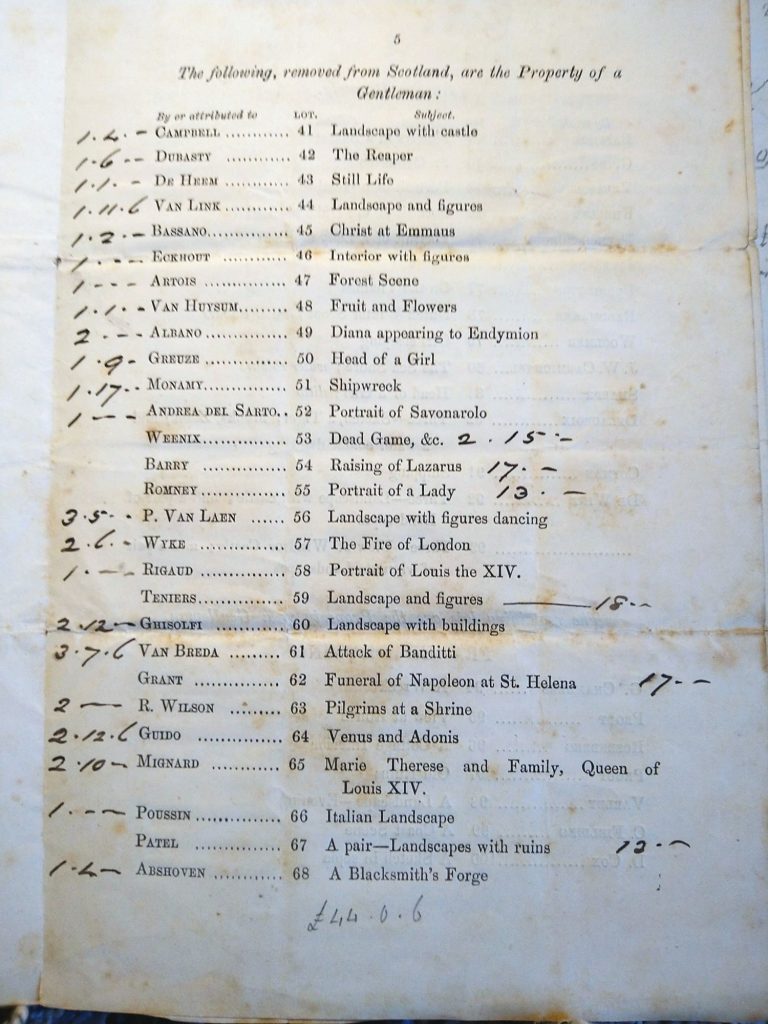 5
The following, removed from Scotland, are the Property of a
Gentleman:
By or attributed to LOT. Subject.
1.4.- CAMPBELL ............ 41 Landscape with castle
1.6-- DUBASTY ............ 42 The Reaper
1.1.- DE HEEM ............ 43 Still Life
1.11.6 VAN LINK ............ 44 Landscape and figures
1.2.- BASSANO............... 45 Christ at Emmaus
1.--- ECKHOUT ............ 46 Interior with figures
1--- ARTOIS ............... 47 Forest Scene
1.1.- VAN HUYSUM......... 48 Fruit and Flowers
2--- ALBANO ............... 49 Diana appearing to Endymion
1.9- GREUZE ............... 50 Head of a Girl
1.17.- MONAMY............... 51 Shipwreck
1--- ANDREA DEL SARTO.. 52 Portrait of Savonarolo
WEENIX............... 53 Dead Game, &c. 2.15.-
BARRY ............... 54 Raising of Lazarus 17.-
ROMNEY............... 55 Portrait of a Lady 13.-
3.5.- P. VAN LAEN ...... 56 Landscape with figures dancing
2.6.- WYKE ............... 57 The Fire of London
1.-- RIGAUD ............... 58 Portrait of Louis the XIV.
TENIERS............... 59 Landscape and figures 18--
2.12- GHISOLFI ............ 60 Landscape with buildings
3.7.6 VAN BREDA ......... 61 Attack of Banditti
GRANT ............... 62 Funeral of Napoleon at St. Helena 17--
2-- R. WILSON ......... 63 Pilgrims at a Shrine
2.12.6 GUIDO ............... 64 Venus and Adonis
2.10- MIGNARD ............ 65 Marie Therese and Family, Queen of
Louis XIV.
1.--- POUSSIN ............... 66 Italian Landscape
PATEL ............... 67 A pair—Landscapes with ruins
1.4- ABSHOVEN ............ 68 A Blacksmith's Forge
£44.0.6